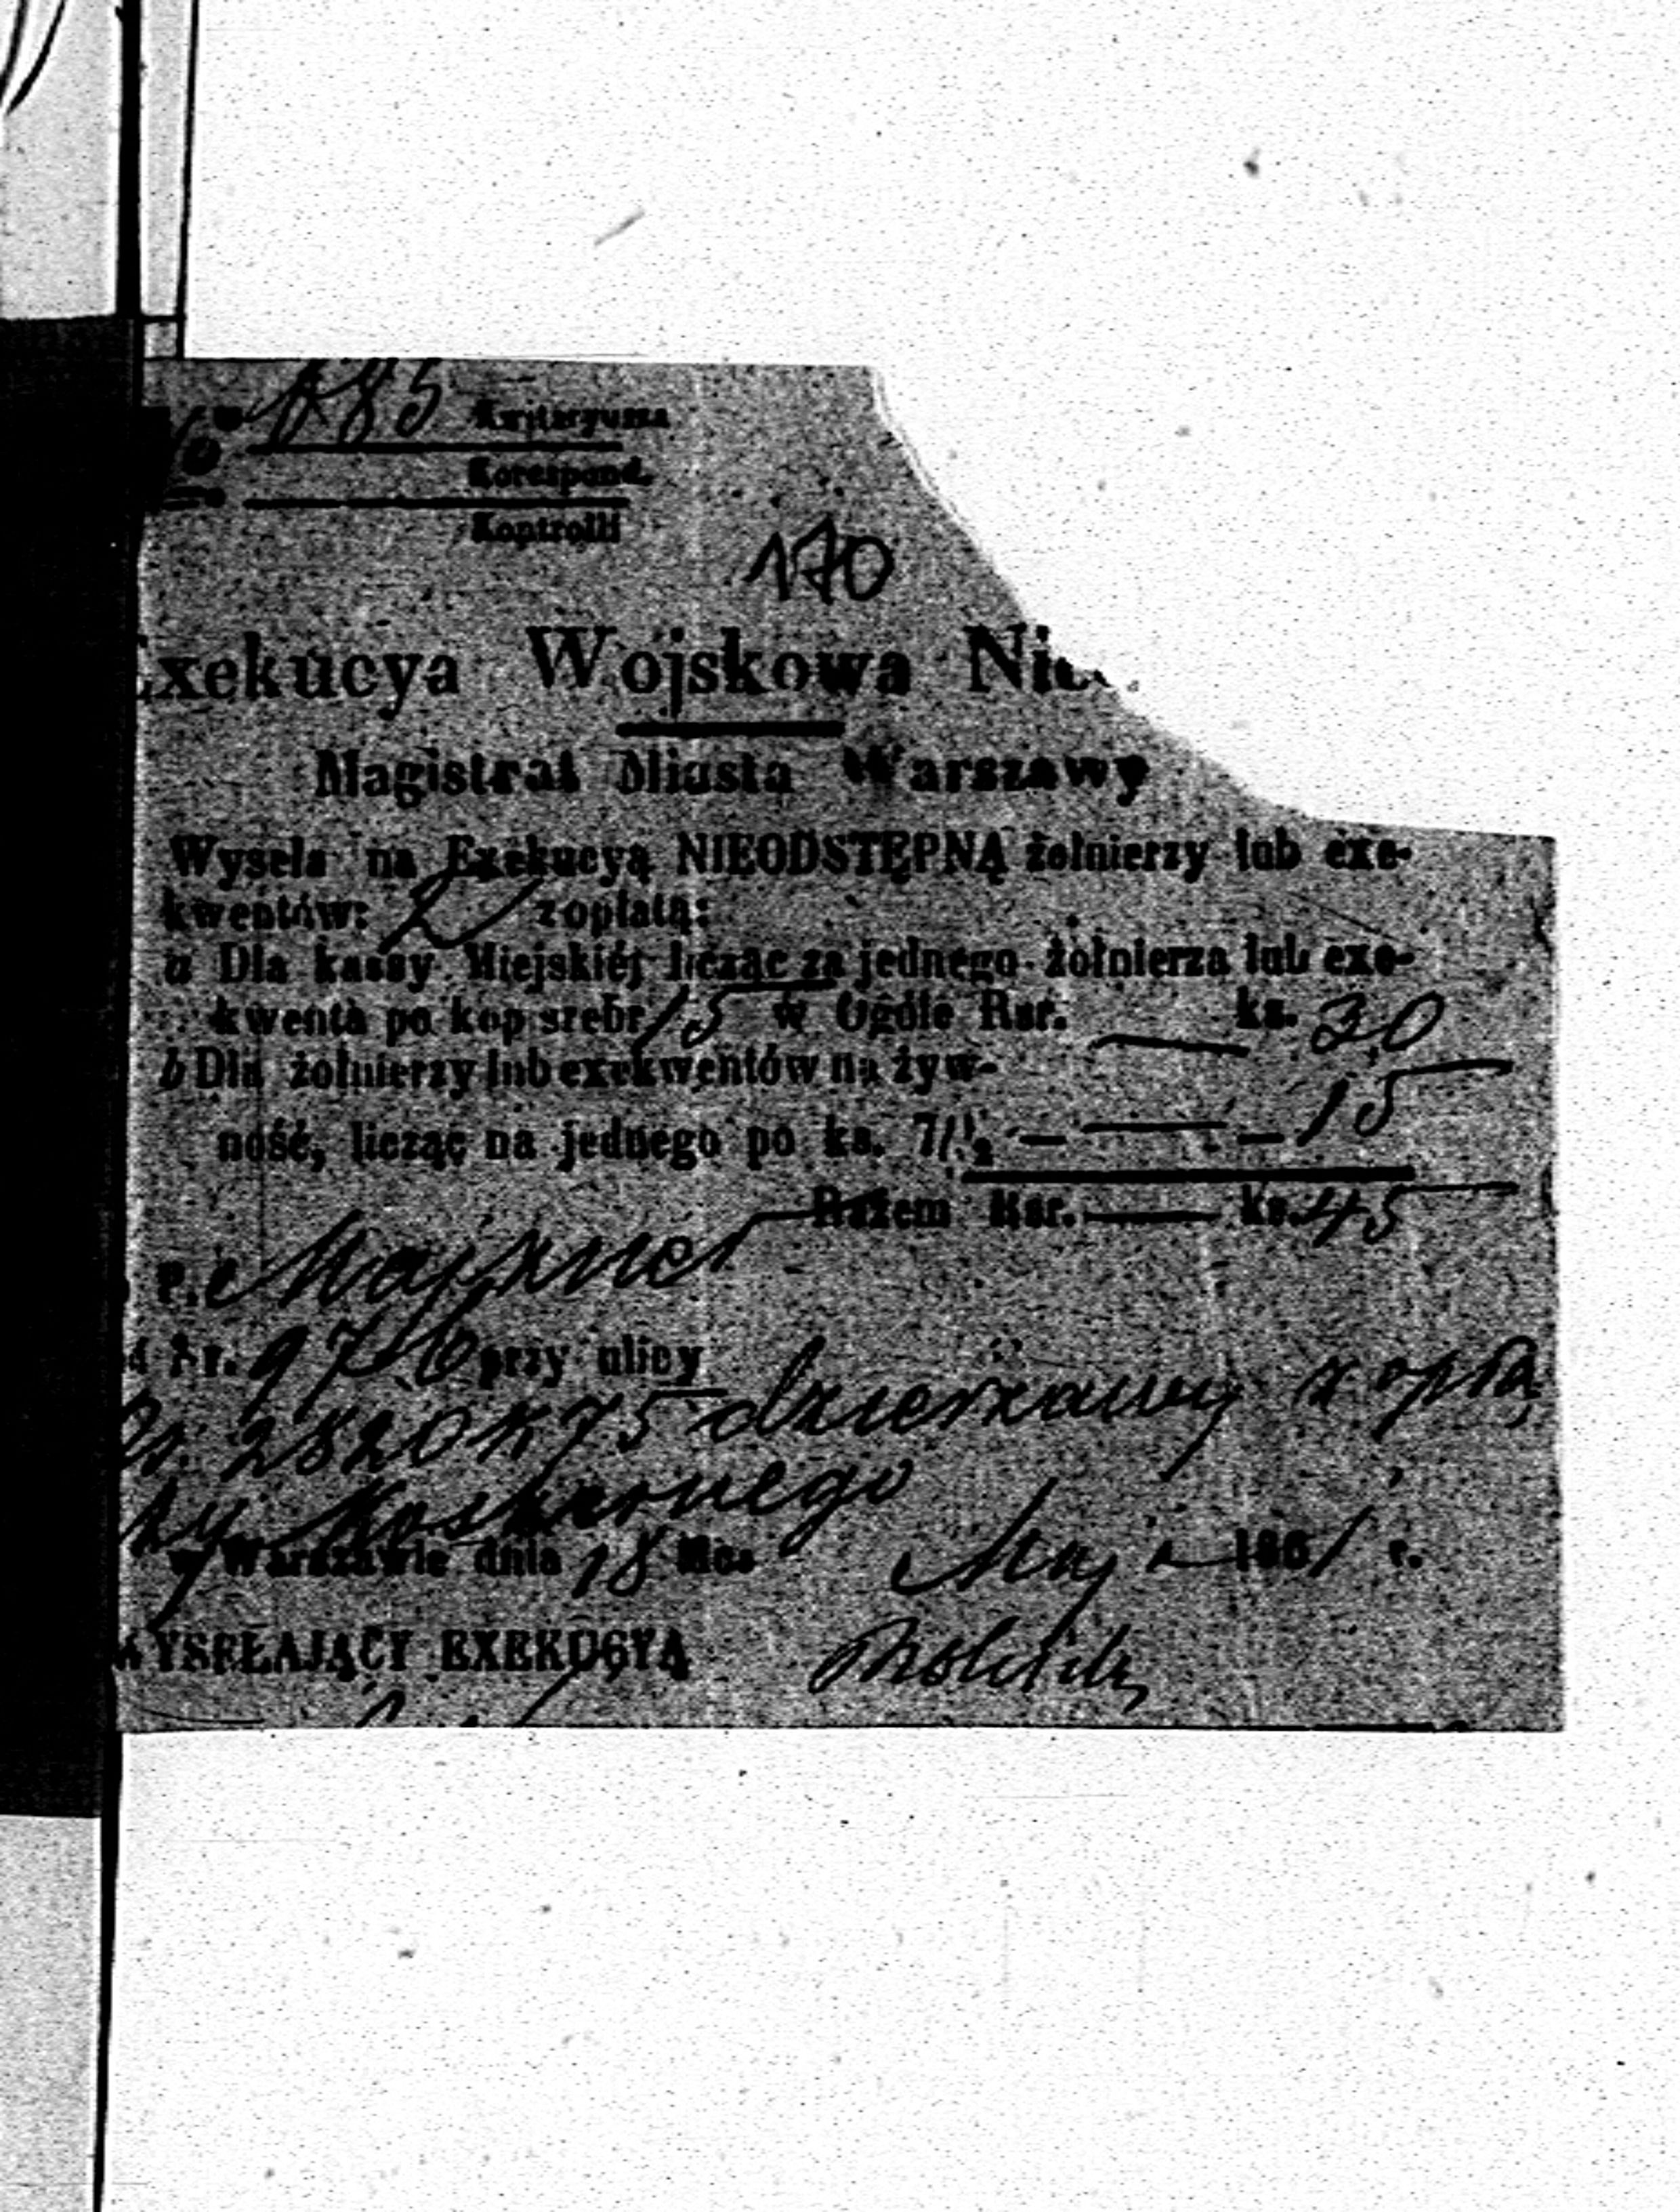 № 185 Kwitaryusza
Korespond.
Kontrolli
170
Exekucya Wojskowa Nie
Magistrat Miasta Warszawy
Wyseła na Exekucyą NIEODSTĘPNĄ żołnierzy lub exe-
kwentów: 2 z opłatą:
a Dla kassy Miejskiéj licząc za jednego żołnierza lub exe-
kwenta po kop srebr 15 w Ogóle Rsr. — ks. 30
b Dla żołnierzy lub exekwentów na żyw-
ność, licząc na jednego po ks. 7½ — — — 15
Razem Rsr. — ks. 45
P. Majzner
Nr. 976 przy ulicy
Rs. 2820 k 75 dzierżawy z opła
ty Koszernego
w Warszawie dnia 18 Mca Maja 1861 r.
WYSEŁAJĄCY EXEKUCYĄ